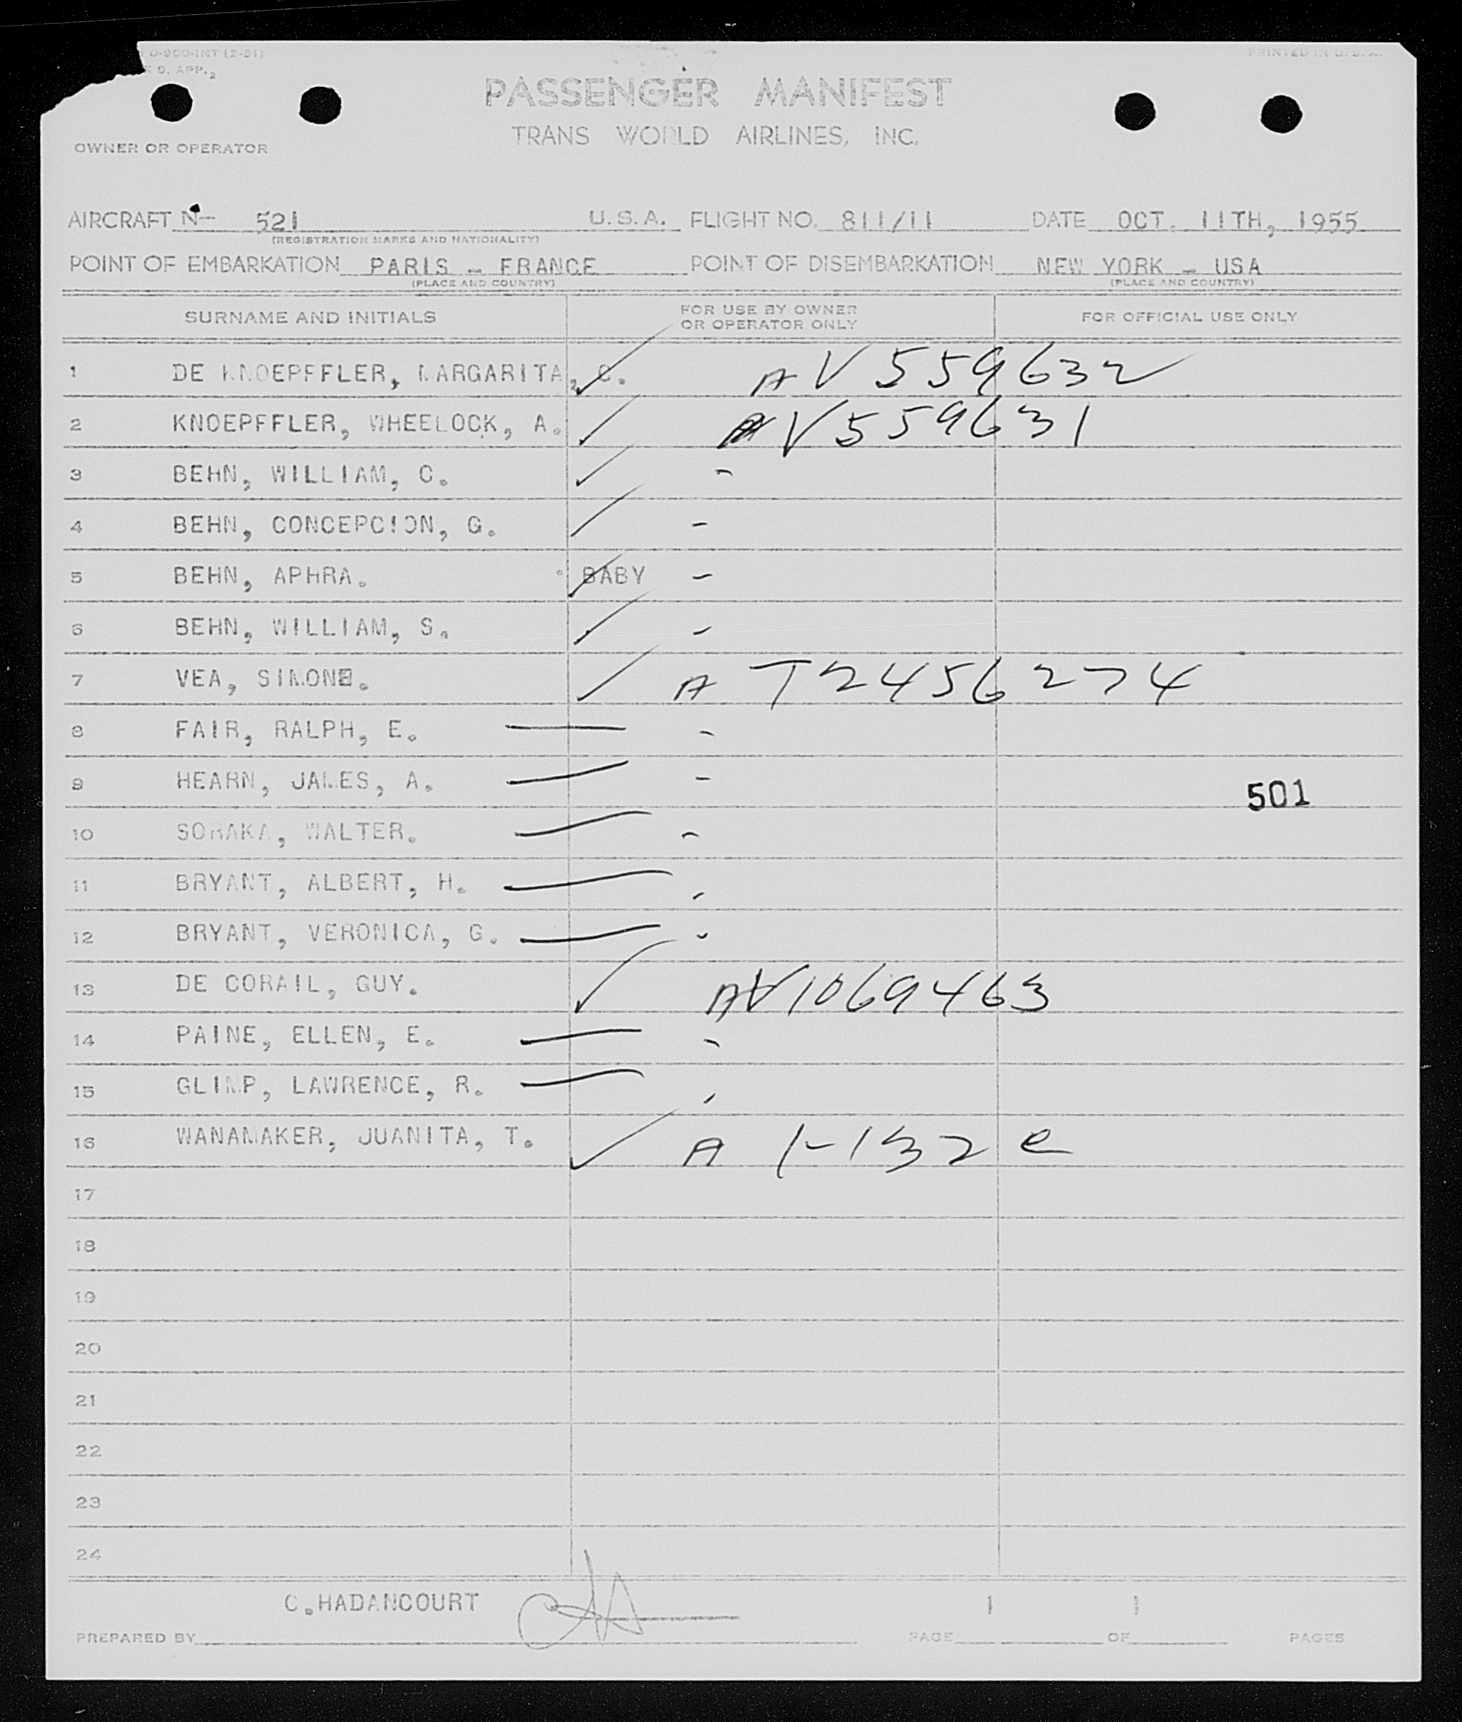 0-900-INT (2-51)
PRINTED IN U.S.A.
D. APP.
PASSENGER MANIFEST
TRANS WORLD AIRLINES, INC.
OWNER OR OPERATOR
AIRCRAFT N- 521 U.S.A. FLIGHT NO. 811/11 DATE OCT. 11TH, 1955
(REGISTRATION MARKS AND NATIONALITY)
POINT OF EMBARKATION PARIS - FRANCE POINT OF DISEMBARKATION NEW YORK - USA
(PLACE AND COUNTRY) (PLACE AND COUNTRY)
SURNAME AND INITIALS FOR USE BY OWNER OR OPERATOR ONLY FOR OFFICIAL USE ONLY
1 DE KNOEPFFLER, MARGARITA, C. AV 559632
2 KNOEPFFLER, WHEELOCK, A. AV 559631
3 BEHN, WILLIAM, C. -
4 BEHN, CONCEPCION, G. -
5 BEHN, APHRA. BABY -
6 BEHN, WILLIAM, S. -
7 VEA, SIMONE. A T2456274
8 FAIR, RALPH, E. -
9 HEARN, JAMES, A. -
501
10 WALTER. -
11 BRYANT, ALBERT, H.
12 BRYANT, VERONICA, G. -
13 DE CORAIL, GUY. AV1069463
14 PAINE, ELLEN, E. -
15 GLIMP, LAWRENCE, R.
16 WANAMAKER, JUANITA, T. A
17
18
19
20
21
22
23
24
C.HADANCOURT 1 1
PREPARED BY PAGE OF PAGES